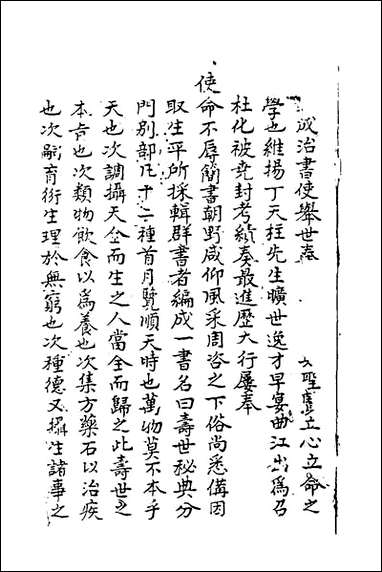 成治書使舉世奉 聖賢立心立命之
學也維揚丁天柱先生曠世逸才早宴曲江出爲召
杜化被堯封考績奏最進歷大行屢奉
使命不辱簡書朝野咸仰風采周咨之下俗尚悉備因
取生平所採輯群書者編成一書名曰壽世秘典分
門別部凡十二種首月覽順天時也萬物莫不本乎
天也次調攝天全而生之人當全而歸之此壽世之
本旨也次類物飲食以爲養也次集方藥石以治疾
也次嗣育衍生理於無窮也次種德又攝生諸事之